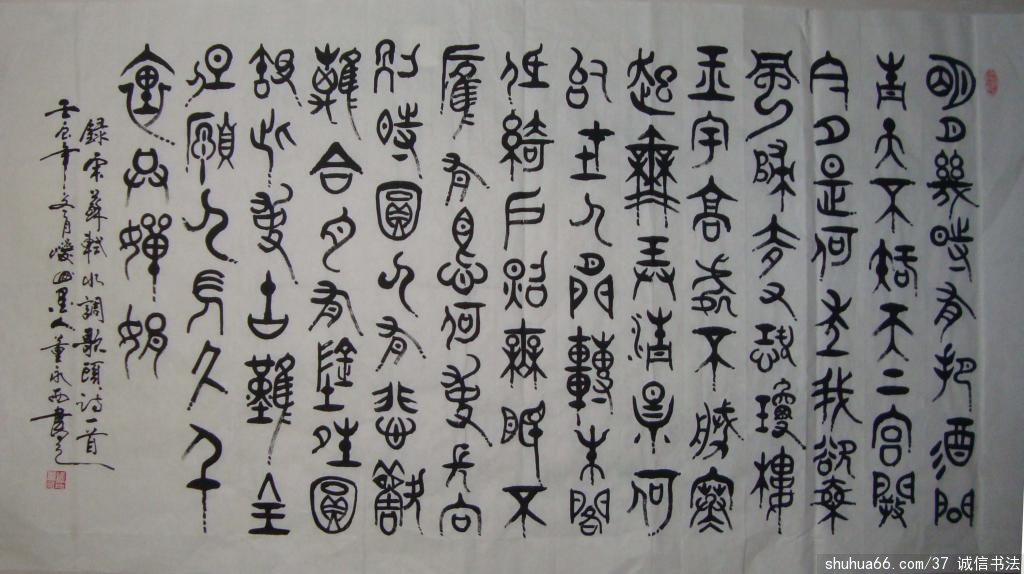 明月幾時有把酒問
青天不知天上宮闕
今夕是何年我欲乘
風歸去又恐瓊樓
玉宇高處不勝寒
起舞弄清影何
似在人間轉朱閣
低綺戶照無眠不
應有恨何事長向
別時圓人有悲歡
離合月有陰晴圓
缺此事古難全
但願人長久千
里共嬋娟
錄宋蘇軾水調歌頭詩一首
壬辰年 月 山 人董永
shuhua66.com/37 诚信书法